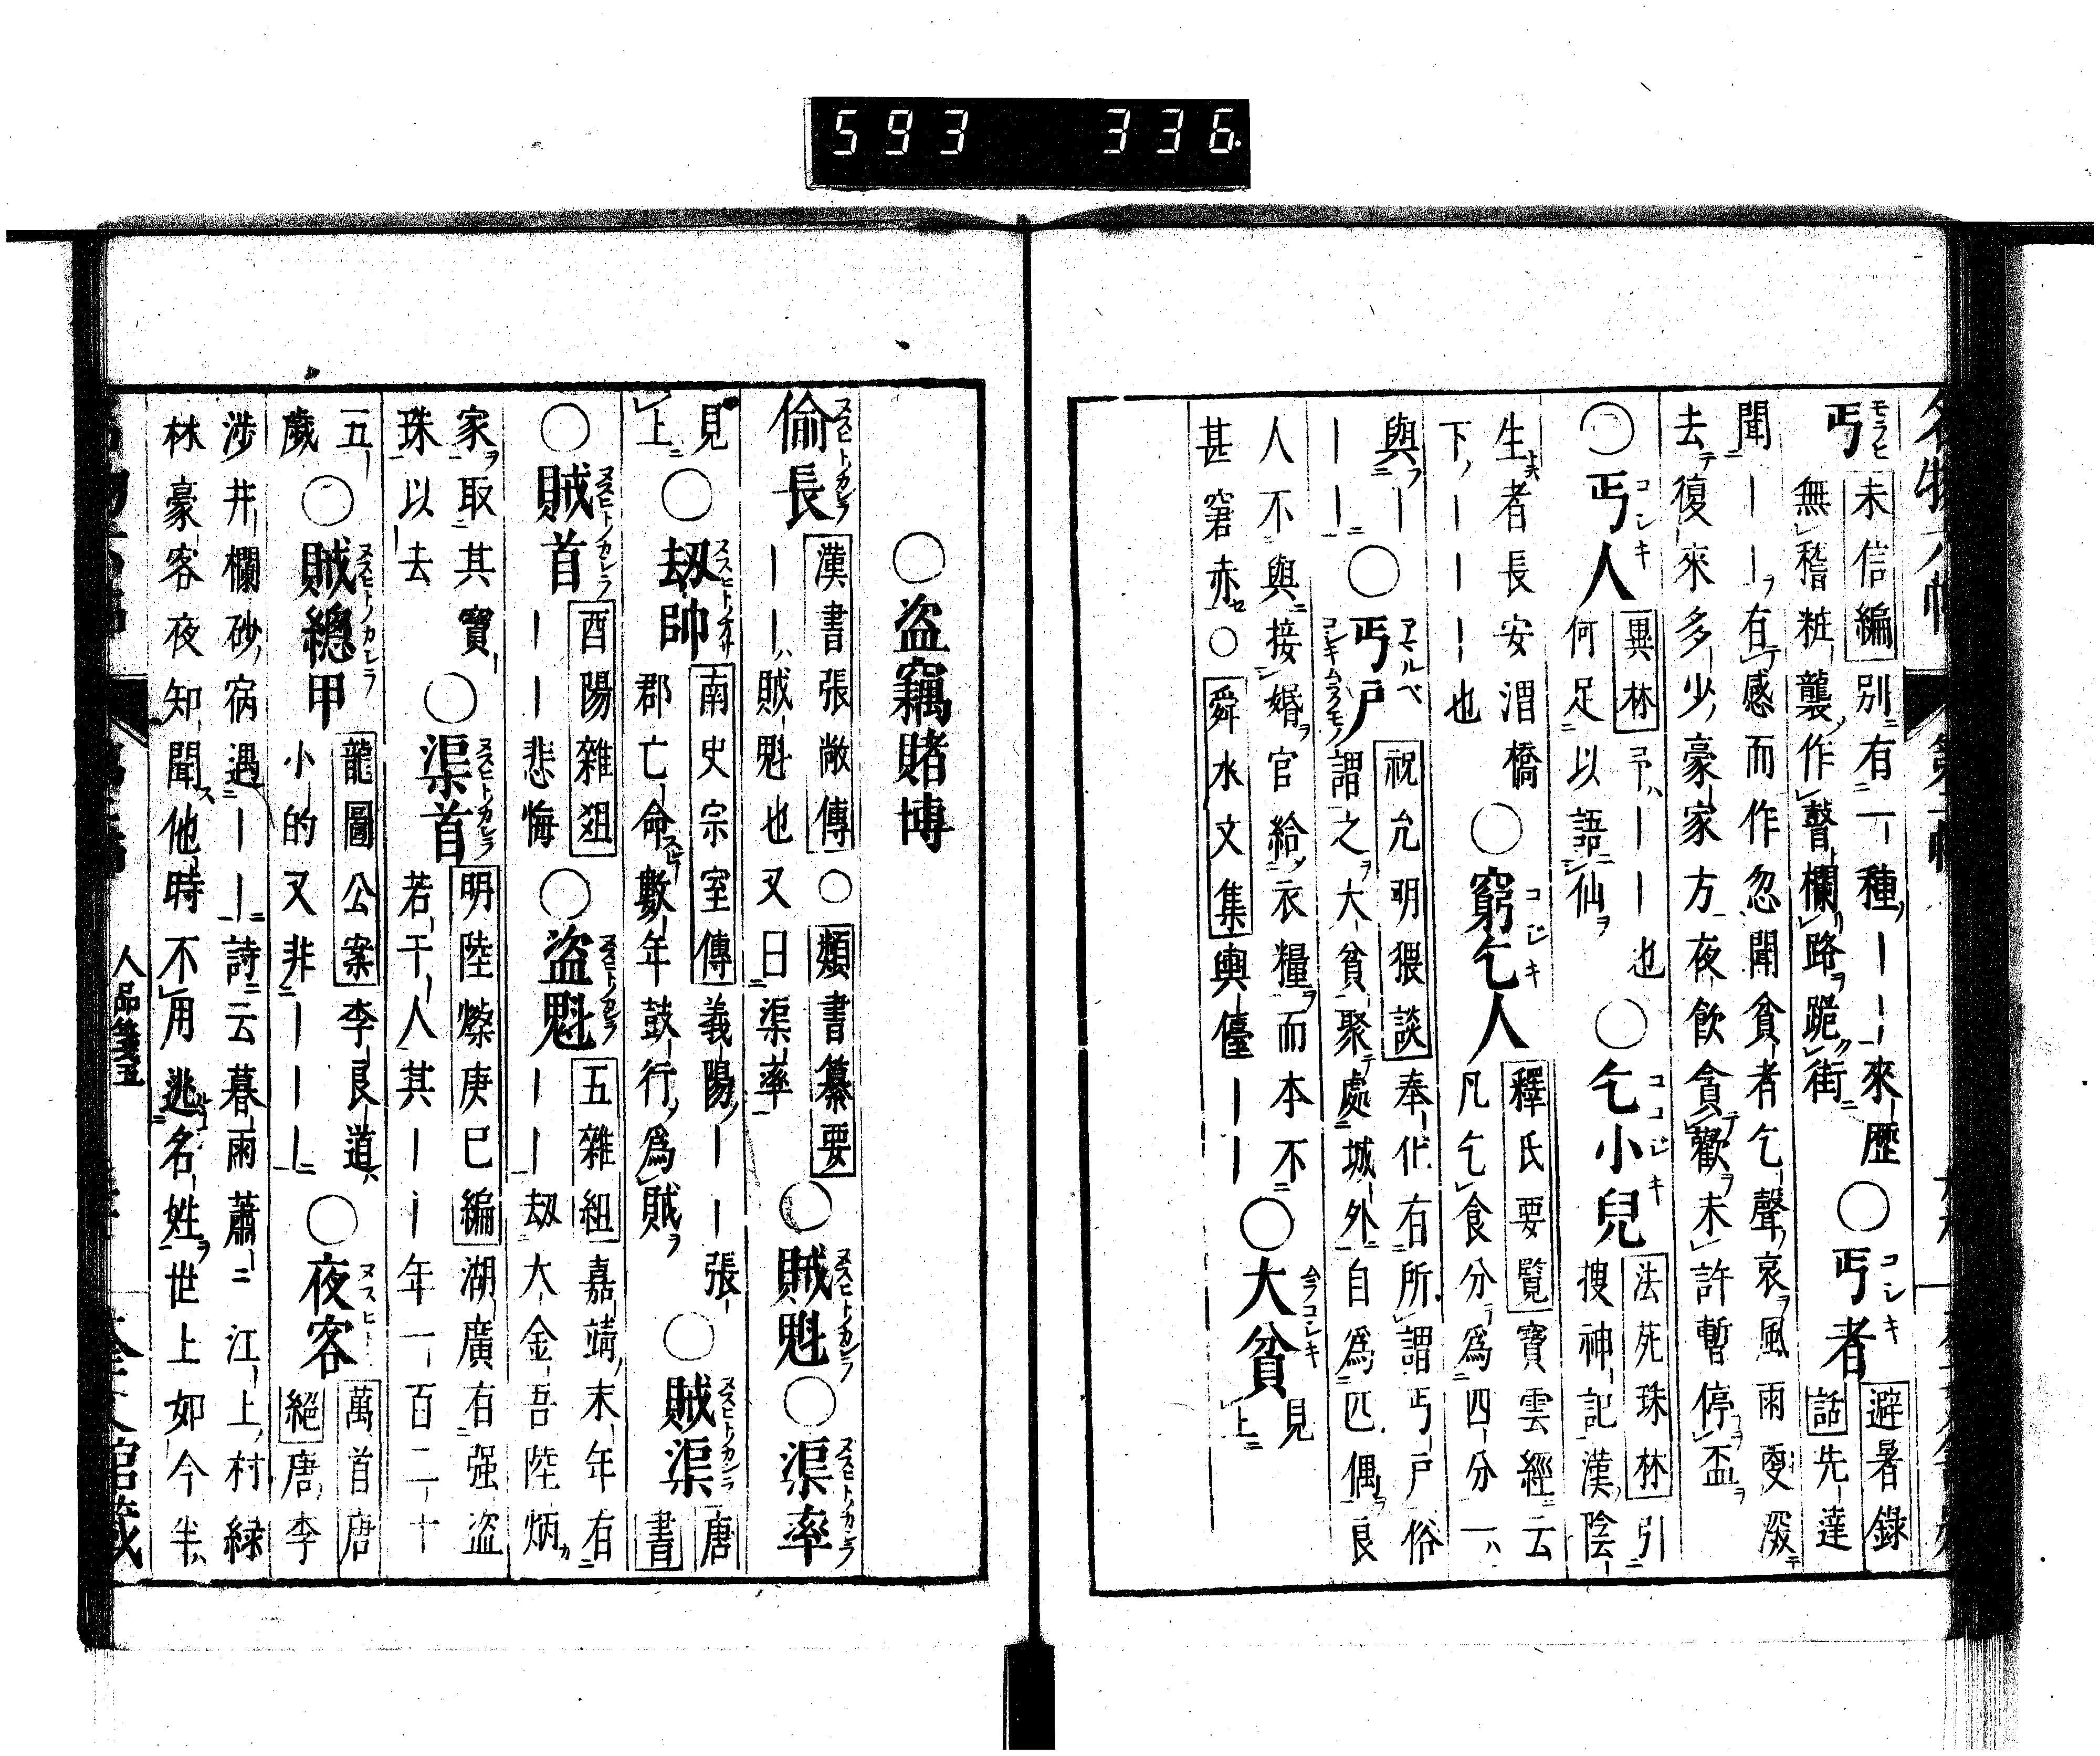 593 336
丐 未信編 別有一種――來歷 ○丐者 避暑錄
無稽粧襲作瞽欄路跪街 話 先達
聞――有感而作忽聞貧者乞聲哀風雨夜深
去復來多少豪家方夜飲貪歡未許暫停盃
○丐人 異林 予――也 ○乞小兒 法苑珠林 引
何足以語仙 搜神記漢陰
生者長安渭橋 ○窮乞人 釋氏要覽 寶雲經云
下―――也 凡乞食分爲四分一
與― ○丐戶 祝允明猥談 奉化有所謂丐戶俗
―― 謂之大貧聚處城外自爲匹偶良
人不與接婚官給衣糧而本不
甚窘赤 ○舜水文集 輿儓―― ○大貧 見上
○盜竊賭博
偷長 漢書張敞傳 ○類書纂要 ○賊魁 ○渠率
――賊魁也又曰渠率
見上 ○刼帥 南史宗室傳 義陽――張 ○賊渠 唐書
郡亡命數年鼓行爲賊
○賊首 酉陽雜俎 ○盜魁 五雜組 嘉靖末年有
――悲悔 ――刼大金吾陸炳
家取其寶 ○渠首 明陸燦庚巳編 湖廣有强盜
珠以去 若干人其――年一百二十
五 ○賊總甲 龍圖公案 李良道 ○夜客 萬首唐
歲 小的又非――― 絕 唐李
涉井欄砂宿遇――詩云暮雨蕭〻江上村綠
林豪客夜知聞他時不用逃名姓世上如今半
人品箋五